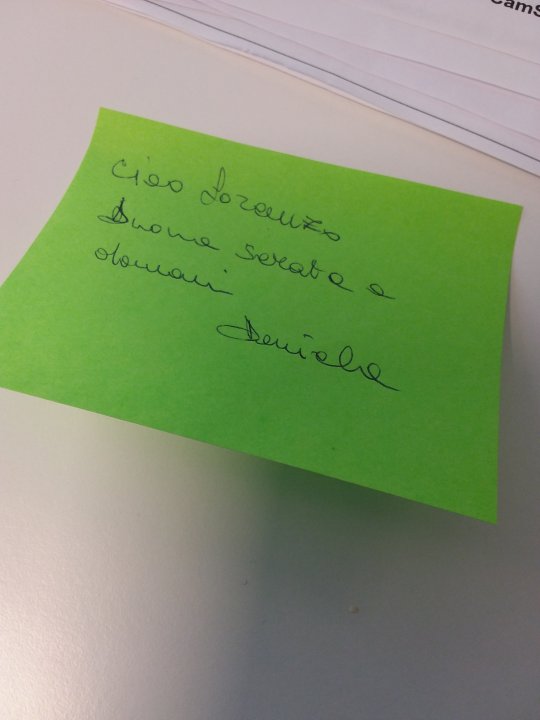 CamS
Ciao Lorenzo
Buona serata a
domani
Daniela